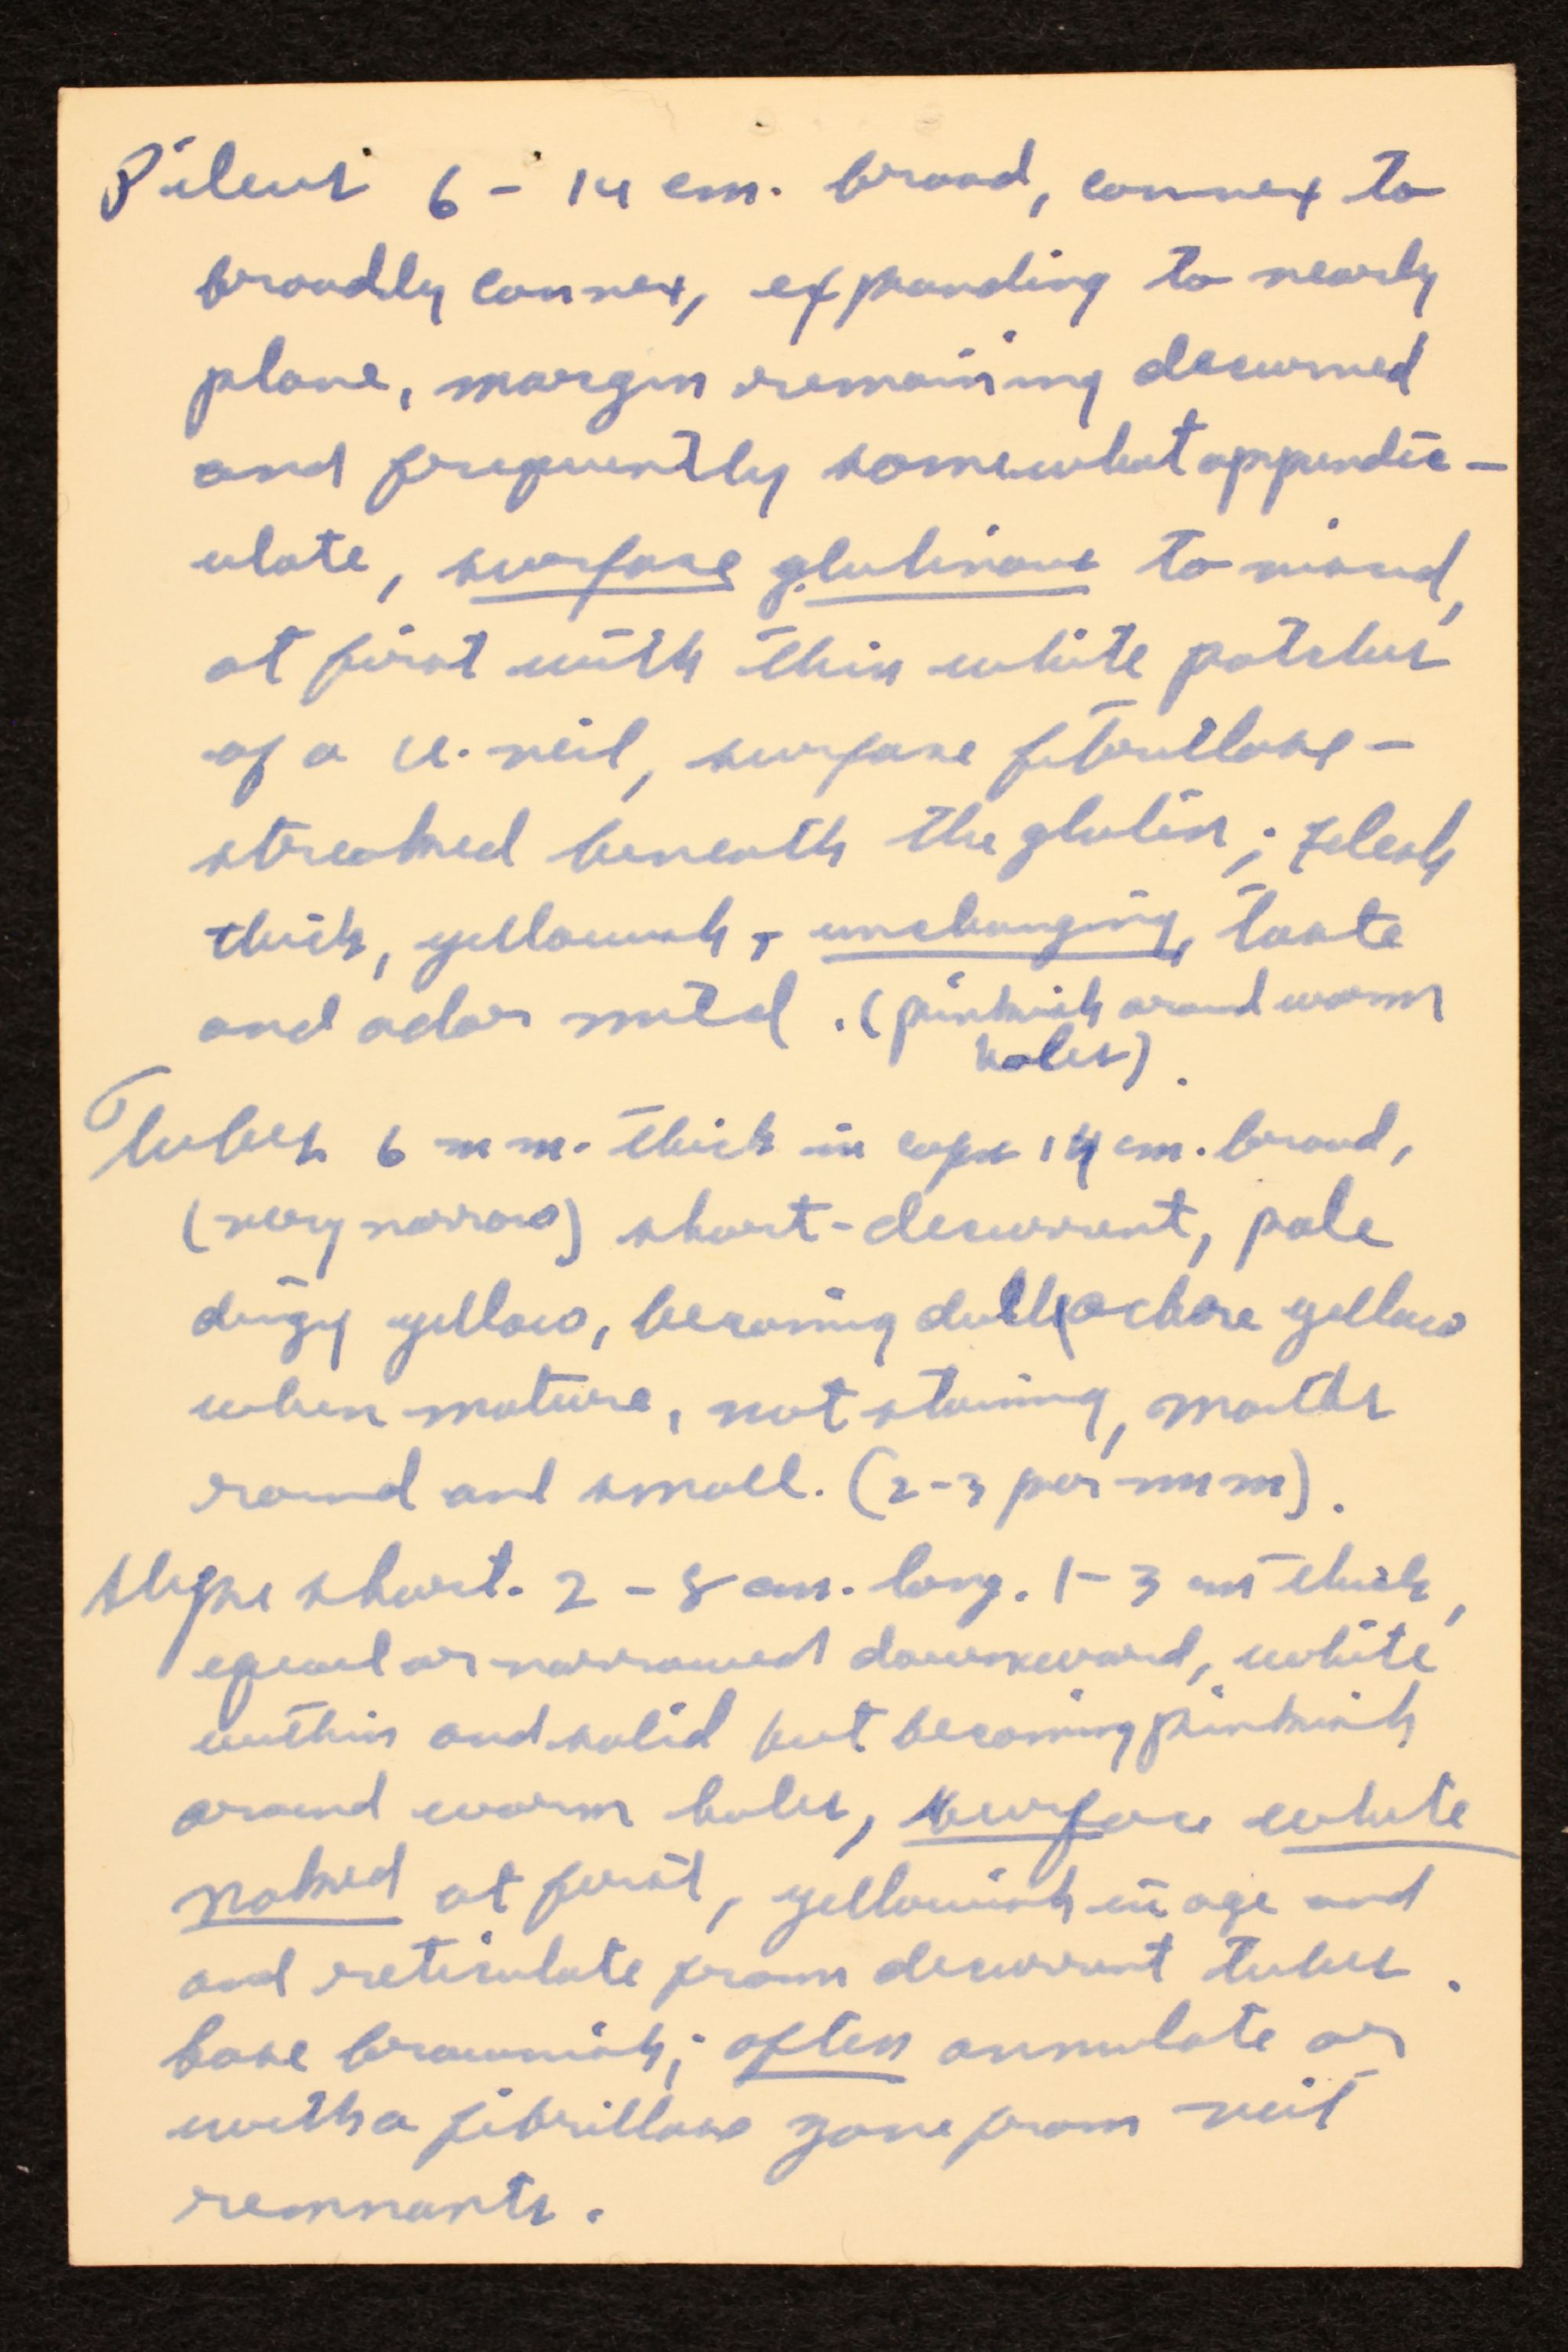 Pileus 6 - 14 cm. broad, convex to
broadly convex, expanding to nearly
plane, margin remaining decurved
and frequently somewhat appendic-
ulate, surface glutinous to viscid,
at first with thin white patches
of a u. veil, surface fibrillose-
streaked beneath the glutin; flesh
thick, yellowish, unchanging, taste
and odor mild. (pinkish around worm
holes).
Tubes 6 mm. thick in caps 14 cm. broad,
(very narrow) short-decurrent, pale
dingy yellow, becoming dull ochre yellow
when mature, not staining, mouths
round and small. (2-3 per mm).
Stipe short. 2 - 8 cm. long. 1 - 3 cm thick,
equal or narrowed downward, white
within and solid but becoming pinkish
around worm holes, surface white
naked at first, yellowish in age and
and reticulate from decurrent tubes.
base brownish; often annulate or
with a fibrillose zone from veil
remnants.